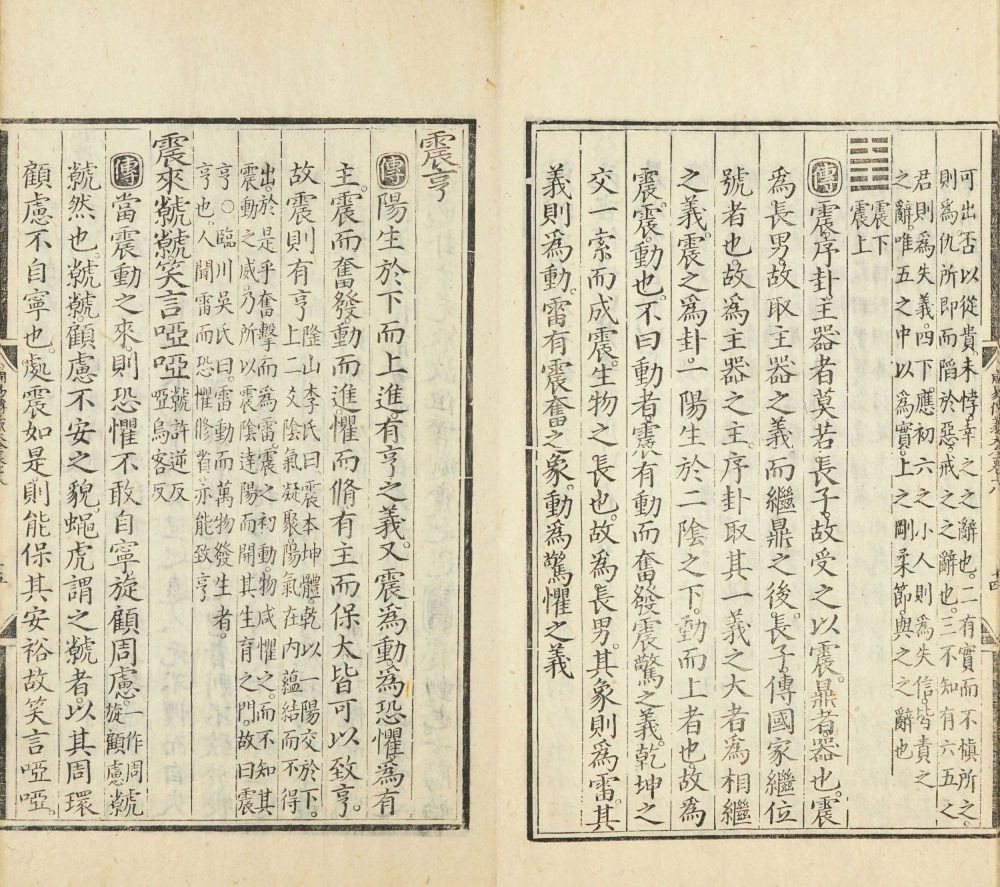 可出否以從貴未悖幸之之辭也二有實而不愼所之
則爲仇所即而䧟於惡戒之之辭也三不知有六五之
君則爲失義四下應初六之小人則爲失信皆責之
之辭唯五之中以爲實上之剛柔節與之之辭也
震下
震上
傳震序卦主器者莫若長子故受之以震鼎者器也震
爲長男故取主器之義而繼鼎之後長子傳國家繼位
號者也故爲主器之主序卦取其一義之大者爲相繼
之義震之爲卦一陽生於二陰之下動而上者也故爲
震震動也不曰動者震有動而奮發震驚之義乾坤之
交一索而成震生物之長也故爲長男其象則爲雷其
義則爲動雷有震奮之象動爲驚懼之義
震亨
傳陽生於下而上進有亨之義又震爲動爲恐懼爲有
主震而奮發動而進懼而脩有主而保大皆可以致亨
故震則有亨
隆山李氏曰震本坤體乾以一陽交於下
上二爻陰氣凝聚陽氣在内蘊結而不得
出於是乎奮擊而爲雷震之初動物咸懼之而不知其
震動之威乃所以震陰達陽而開其生育之門故曰震
亨○臨川吳氏曰雷動而萬物發生者
亨也人聞雷而恐懼修省亦能致亨
震來虩虩笑言啞啞
虩許逆反
啞烏客反
傳當震動之來則恐懼不敢自寧旋顧周慮
一作周
旋顧慮
虩
虩然也虩虩顧慮不安之貌蠅虎謂之虩者以其周環
顧慮不自寧也處震如是則能保其安裕故笑言啞